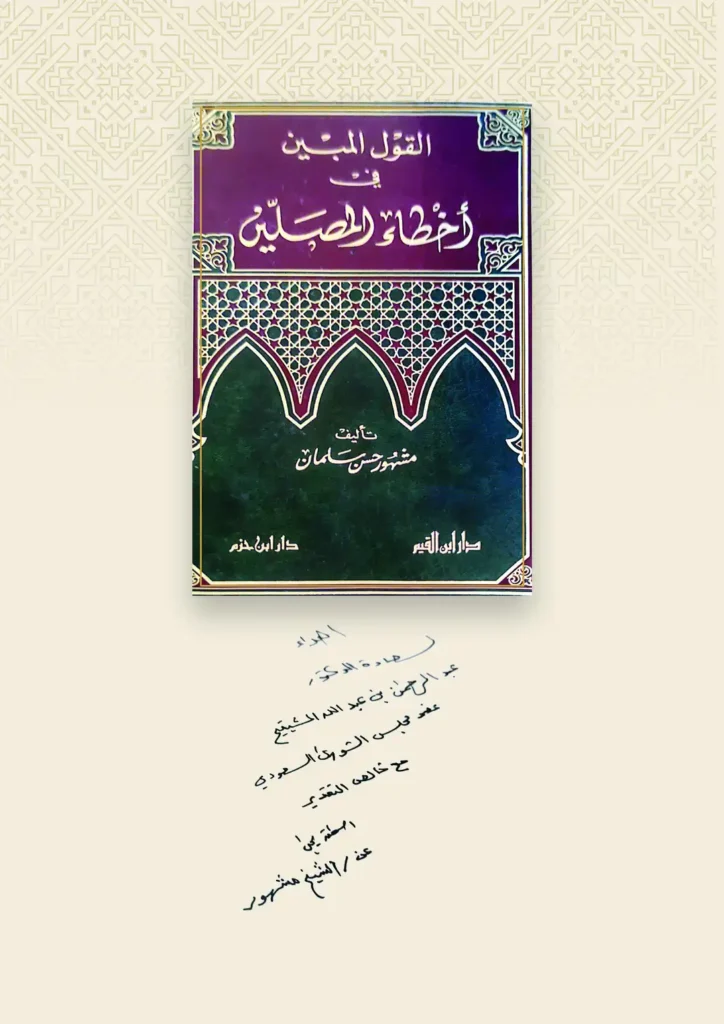 القول المبين
في
أخطاء المصلين
تأليف
مشهور حسن سلمان
دار ابن القيم
دار ابن حزم
اهداء
لسعادة الدكتور
عبد الرحمن بن عبد الله المشيقح
عضو مجلس الشورى السعودي
مع خالص التقدير
عن / الشيخ مشهور